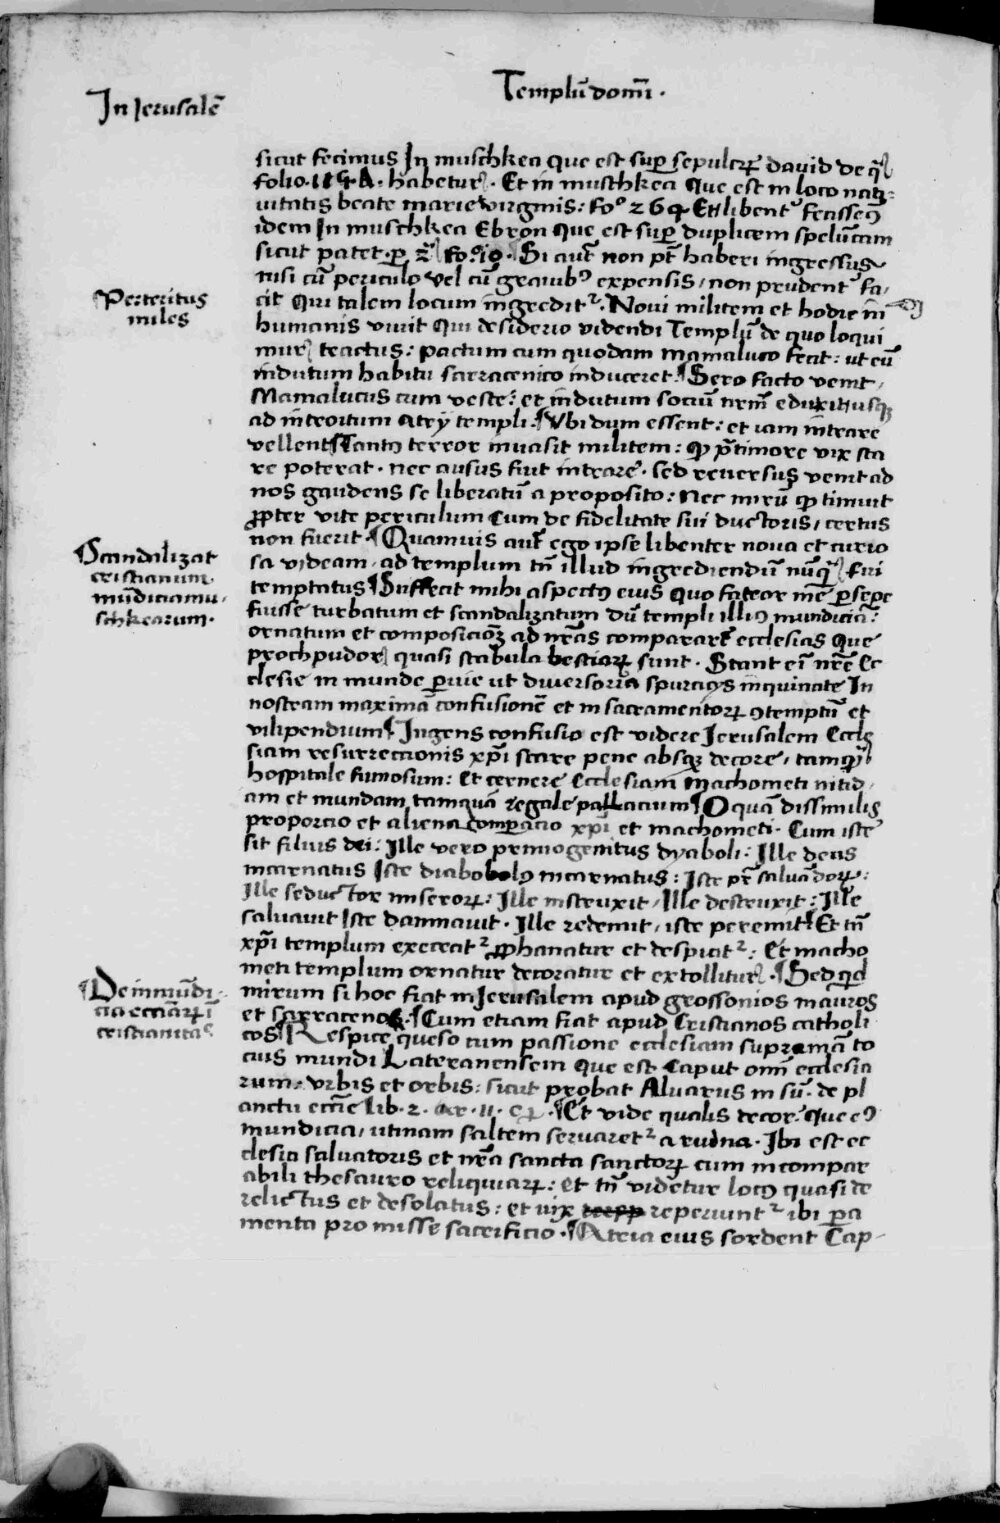 In Jerusalē
Templū domī .
sicut fecimus In muschkea que est suꝑ sepulcrꝝ david de qͣ
folio . 114 A . habetur . Et in muschkea que est in loco nati=
uitatis beate marie virginis : foº 264 Et libentˀ fecissꝫ
idem In muschkea Ebron que est suꝑ duplicem speluncam
sicut patet . ꝑ 2ͣ foº 10 . Si aut̄ non pt̄ haberi ingressus
nisi cū periculo vel cū grauibꝰ expensis / non prudent̄ fa-
cit qui talem locum ingreditᷣ . Noui militem et hodie in
humanis viuit qui desiderio videndi Templū de quo loqui
mur tractus : pactum cum quodam mamaluco fecit : ut eū
indutum habitu sarracenico induceret . ¶ Sero facto venit /
Mamalucus cum veste : et indutum sociū nrm̄ eduxit usqꝫ
ad introitum atrÿ templi . ¶ Vbi dum essent : et iam intrare
vellent ¶ Tantꝰ terror inuasit militem : qꝫ p̄ timore vix sta
re poterat . nec ausus fuit intrare . sed reuersus venit ad
nos gaudens se liberatū a proposito : nec mirū qꝫ timuit
ꝓpter vite periculum Cum de fidelitate sui ductoris / certus
non fuerit . ¶ Quamuis aut̄ ego ipse libenter noua et curio
sa videam / ad templum tn̄ illud ingrediendū nūqͣ fui
temptatus ¶ Suffecit mihi aspectꝰ eius quo fateor me ꝑsepe
fuisse turbatum et scandalizatum dū templi illiꝰ mundiciā :
ornatum et composiciōꝫ ad nrās compararē ecclesias que
proch pudor quasi stabula bestiarꝝ sunt . Stant eī nrē Ec
clesie in munde ꝑuie ut diuersoria spurcijs inquinate In
nostram maximā confusionē et in sacramentorꝝ ꝯtemptū et
vilipendium ¶ Ingens confusio est videre Jerusalem Eccle
siam resurrectionis xp̄i stare pene absqꝫ decore / tamqͣ
hospitale fumosum : Et cernere Ecclesiam Machometi nitid /
am et mundam tamquā regale pallacium ¶ O quā dissimilis
proporcio et aliena comꝑacio xp̄i et machometi . Cum iste
sit filius dei : Ille vero primogenitus dyaboli : Ille deus
incarnatus Iste diabobolꝰ incarnatus : Iste pr̄ saluādorꝝ :
Ille seductor miserorꝝ : Ille instruxit / Ille destruxit : Ille
saluauit Iste damnauit . Ille redemit , iste peremit ¶ Et tn̄
xp̄i templum execratᷣ ꝓphanatur et despicitᷣ : Et macho
meti templum ornatur decoratur et extollitur . ¶ Sed qd
mirum si hoc fiat in Jerusalem apud grossonios mauros
et sarracenos . ¶ Cum etiam fiat apud Cristianos catholi
cos ¶ Respice queso cum passione ecclesiam supremā to
cius mundi Lateranensem que est Caput om̄ ecclesia
rum : vrbis et orbis : sicut probat Aluarus in su° . de pl
anctu eccīe lib . 2 . ar . 11 . Et vide qualis decor : que eꝰ
mundicia / utinam saltem seruaretᷣ a ruina . Ibi est ec
clesia saluatoris et nrā sancta sanctorꝝ cum incompar
abili thesauro reliquiarꝝ : et tn̄ videtur locꝰ quasi de
relictus et desolatus : et vix reperiuntᷣ ibi ꝑa
menta pro misse sacrificio . ¶ Atria eius sordent Cap-
Perteritus
miles
¶ Scandalizat
cristianum
mūdicia mu-
schkearum .
¶ De inmūdi-
cia ecciārꝝ ī
cristianita